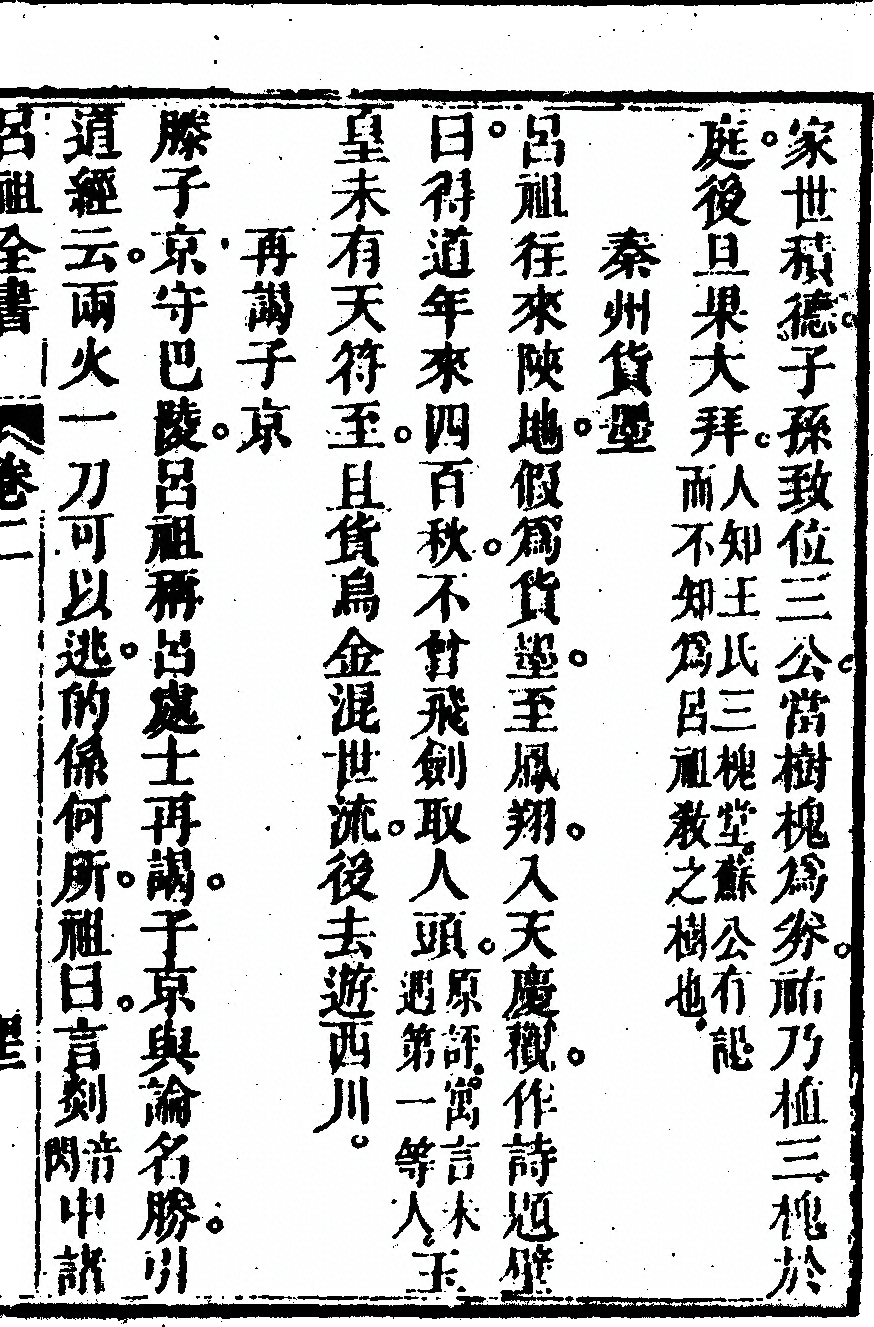 家世積德。子孫致位三公。當樹槐爲券。祐乃植三槐於
庭。後旦果大拜。人知王氏三槐堂。蘇公有記。而不知爲呂祖教之樹也。
秦州貨墨
呂祖往來陝地。假爲貨墨。至鳳翔。入天慶觀。作詩題壁
曰。得道年來四百秋。不曾飛劍取人頭。原評。寓言未遇第一等人。玉
皇未有天符至。且貨烏金混世流。後去遊西川。
再謁子京
滕子京守巴陵。呂祖稱呂處士再謁。子京與論名勝。引
道經云。兩火一刀可以逃。的係何所。祖曰。言剡音閃中諸
呂祖全書 卷二